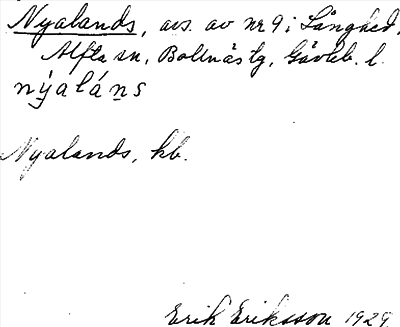 Nyalands, avs. av nr 9 i Långhed,
Alfta sn, Bollnäs tg, Gävleb. l.
nýaláns
Nyalands, kb.
Erik Eriksson 1929